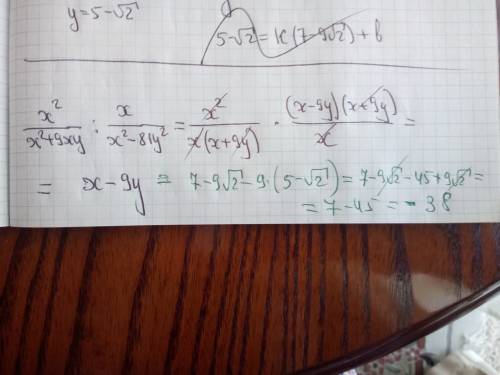 y = 5-√2
5-√2 = k(7-9√2)+b
x²/(x²+9xy) : x/(x²-81y²) = x²/(x(x+9y)) · (x-9y)(x+9y)/x =
= x-9y = 7-9√2-9·(5-√2) = 7-9√2-45+9√2 =
= 7-45 = -38